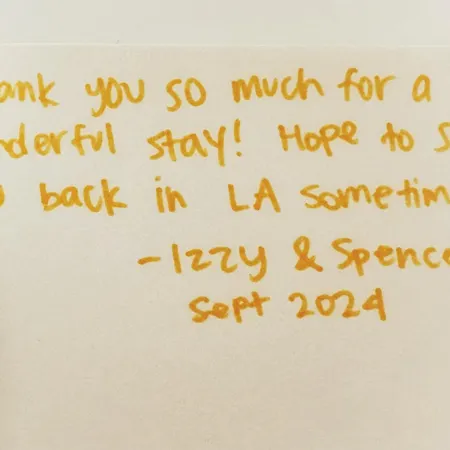 ank you so much for a
nderful stay! Hope to s
back in LA sometim
-Izzy & Spence
Sept 2024